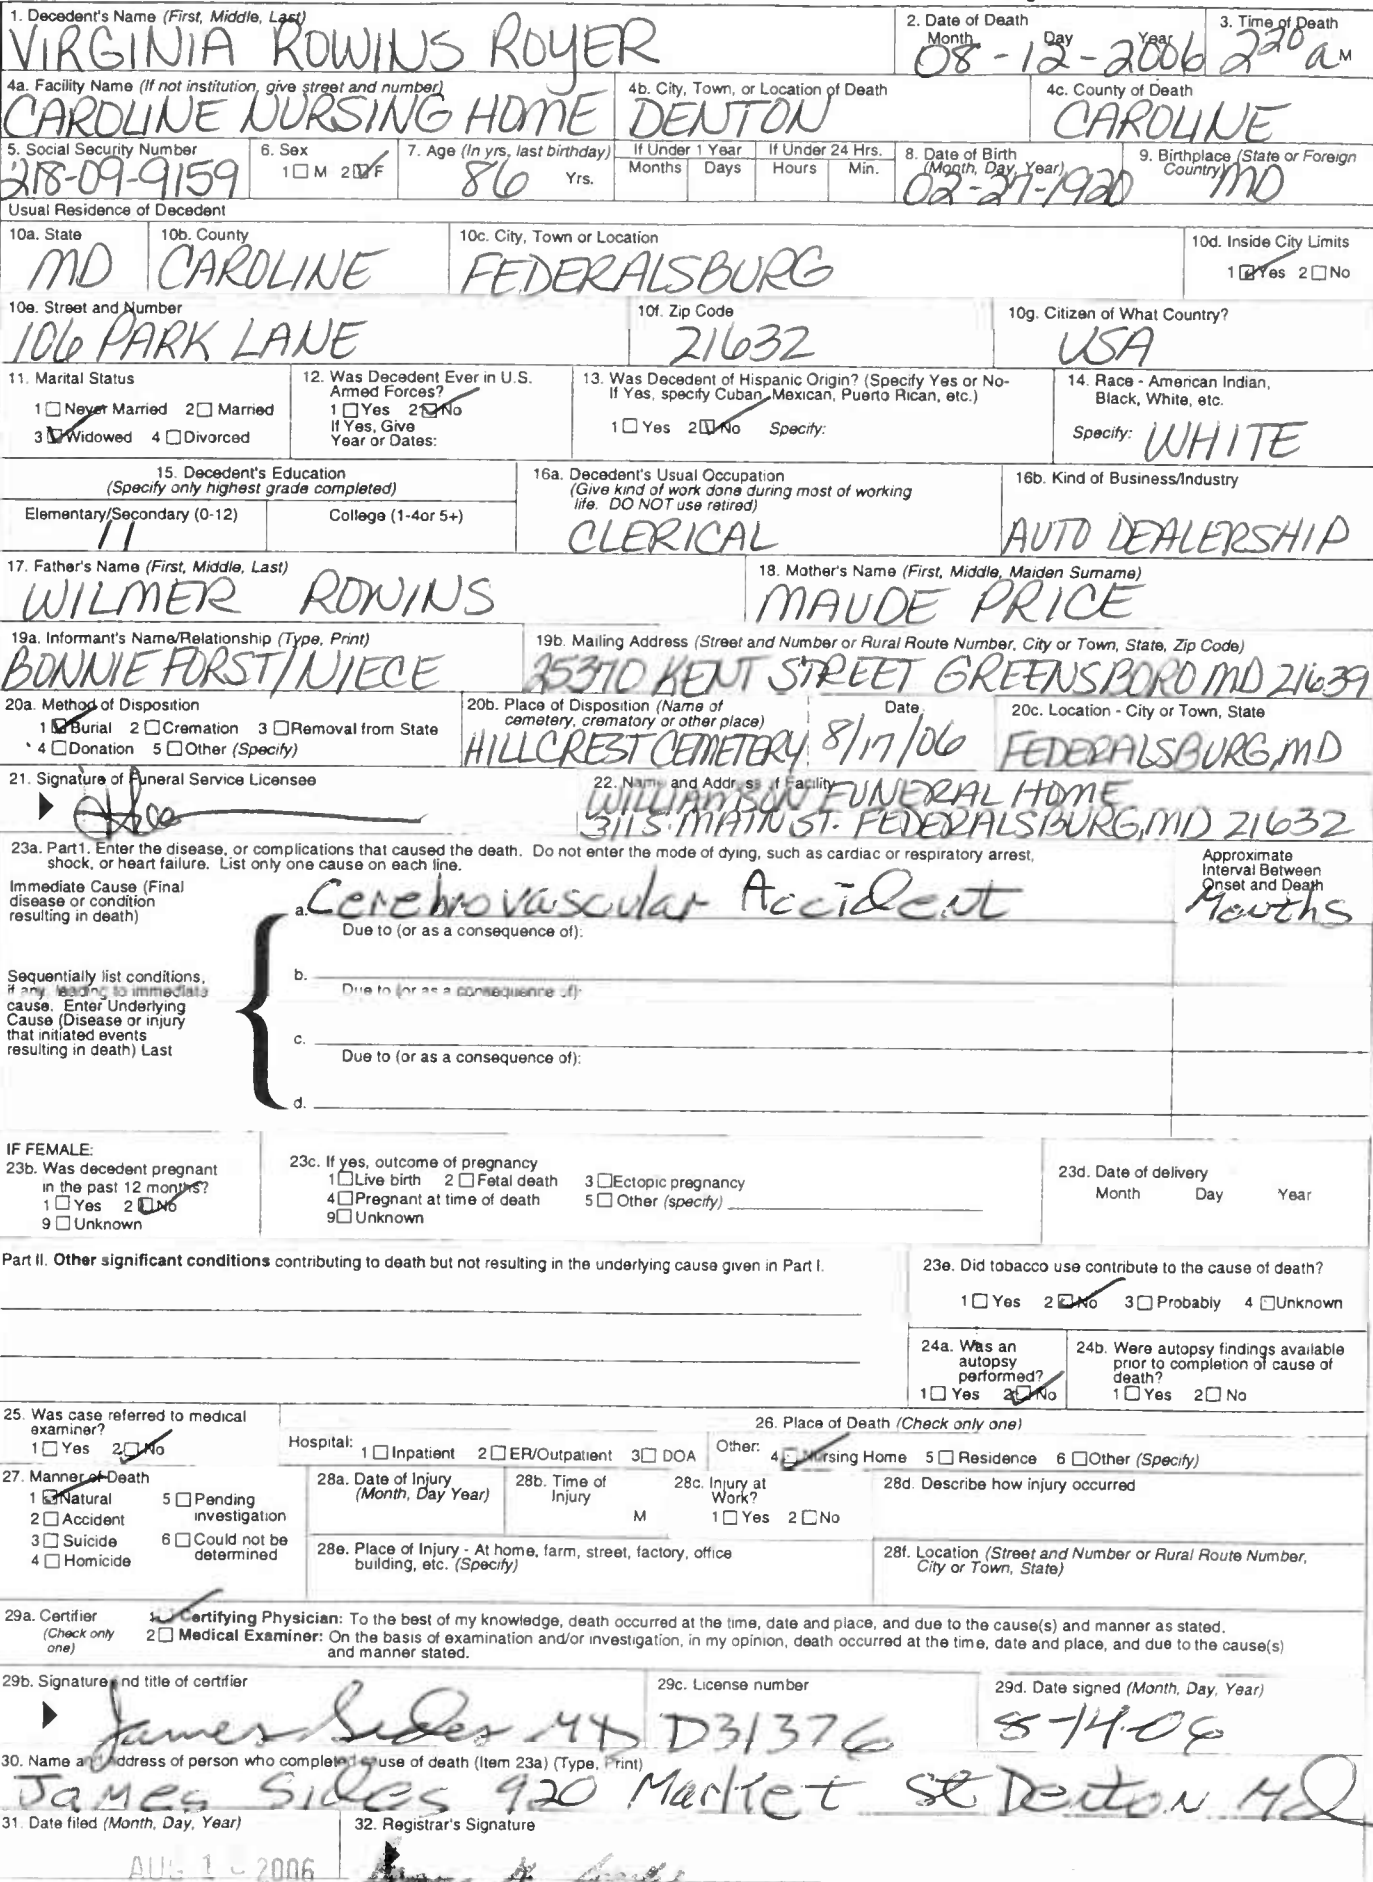 1. Decedent's Name (First, Middle, Last)
VIRGINIA ROWINS ROYER
2. Date of Death
Month Day Year
08-12-2006
3. Time of Death
2 20 a M
4a. Facility Name (If not institution, give street and number)
CAROLINE NURSING HOME
4b. City, Town, or Location of Death
DENTON
4c. County of Death
CAROLINE
5. Social Security Number
218-09-9159
6. Sex
1 M 2 F
7. Age (In yrs. last birthday)
86 Yrs.
If Under 1 Year
Months Days
If Under 24 Hrs.
Hours Min.
8. Date of Birth
(Month, Day, Year)
02-27-1920
9. Birthplace (State or Foreign
Country)
MD
Usual Residence of Decedent
10a. State
MD
10b. County
CAROLINE
10c. City, Town or Location
FEDERALSBURG
10d. Inside City Limits
1 Yes 2 No
10e. Street and Number
106 PARK LANE
10f. Zip Code
21632
10g. Citizen of What Country?
USA
11. Marital Status
1 Never Married 2 Married
3 Widowed 4 Divorced
12. Was Decedent Ever in U.S.
Armed Forces?
1 Yes 2 No
If Yes, Give
Year or Dates:
13. Was Decedent of Hispanic Origin? (Specify Yes or No-
If Yes, specify Cuban, Mexican, Puerto Rican, etc.)
1 Yes 2 No Specify:
14. Race - American Indian,
Black, White, etc.
Specify: WHITE
15. Decedent's Education
(Specify only highest grade completed)
Elementary/Secondary (0-12)
11
College (1-4or 5+)
16a. Decedent's Usual Occupation
(Give kind of work done during most of working
life. DO NOT use retired)
CLERICAL
16b. Kind of Business/Industry
AUTO DEALERSHIP
17. Father's Name (First, Middle, Last)
WILMER ROWINS
18. Mother's Name (First, Middle, Maiden Surname)
MAUDE PRICE
19a. Informant's Name/Relationship (Type, Print)
BONNIE FORST/NIECE
19b. Mailing Address (Street and Number or Rural Route Number, City or Town, State, Zip Code)
25370 KENT STREET GREENSBORO MD 21639
20a. Method of Disposition
1 Burial 2 Cremation 3 Removal from State
4 Donation 5 Other (Specify)
20b. Place of Disposition (Name of
cemetery, crematory or other place)
HILLCREST CEMETERY
Date
8/17/06
20c. Location - City or Town, State
FEDERALSBURG, MD
21. Signature of Funeral Service Licensee
22. Name and Address of Facility
WILLIAMSON FUNERAL HOME
311 S. MAIN ST. FEDERALSBURG, MD 21632
23a. Part1. Enter the disease, or complications that caused the death. Do not enter the mode of dying, such as cardiac or respiratory arrest,
shock, or heart failure. List only one cause on each line.
Approximate
Interval Between
Onset and Death
Immediate Cause (Final
disease or condition
resulting in death)
a. Cerebrovascular Accident
Months
Due to (or as a consequence of):
Sequentially list conditions,
if any, leading to immediate
cause. Enter Underlying
Cause (Disease or injury
that initiated events
resulting in death) Last
b.
Due to (or as a consequence of):
c.
Due to (or as a consequence of):
d.
IF FEMALE:
23b. Was decedent pregnant
in the past 12 months?
1 Yes 2 No
9 Unknown
23c. If yes, outcome of pregnancy
1 Live birth 2 Fetal death 3 Ectopic pregnancy
4 Pregnant at time of death 5 Other (specify)
9 Unknown
23d. Date of delivery
Month Day Year
Part II. Other significant conditions contributing to death but not resulting in the underlying cause given in Part I.
23e. Did tobacco use contribute to the cause of death?
1 Yes 2 No 3 Probably 4 Unknown
24a. Was an
autopsy
performed?
1 Yes 2 No
24b. Were autopsy findings available
prior to completion of cause of
death?
1 Yes 2 No
25. Was case referred to medical
examiner?
1 Yes 2 No
26. Place of Death (Check only one)
Hospital: 1 Inpatient 2 ER/Outpatient 3 DOA
Other: 4 Nursing Home 5 Residence 6 Other (Specify)
27. Manner of Death
1 Natural 5 Pending
investigation
2 Accident
3 Suicide 6 Could not be
determined
4 Homicide
28a. Date of Injury
(Month, Day Year)
28b. Time of
Injury
M
28c. Injury at
Work?
1 Yes 2 No
28d. Describe how injury occurred
28e. Place of Injury - At home, farm, street, factory, office
building, etc. (Specify)
28f. Location (Street and Number or Rural Route Number,
City or Town, State)
29a. Certifier
(Check only
one)
1 Certifying Physician: To the best of my knowledge, death occurred at the time, date and place, and due to the cause(s) and manner as stated.
2 Medical Examiner: On the basis of examination and/or investigation, in my opinion, death occurred at the time, date and place, and due to the cause(s)
and manner stated.
29b. Signature and title of certifier
James Sides MD
29c. License number
D31376
29d. Date signed (Month, Day, Year)
8-14-06
30. Name and address of person who completed cause of death (Item 23a) (Type, Print)
James Sides 920 Market St Denton Md
31. Date filed (Month, Day, Year)
AUG 1 2006
32. Registrar's Signature